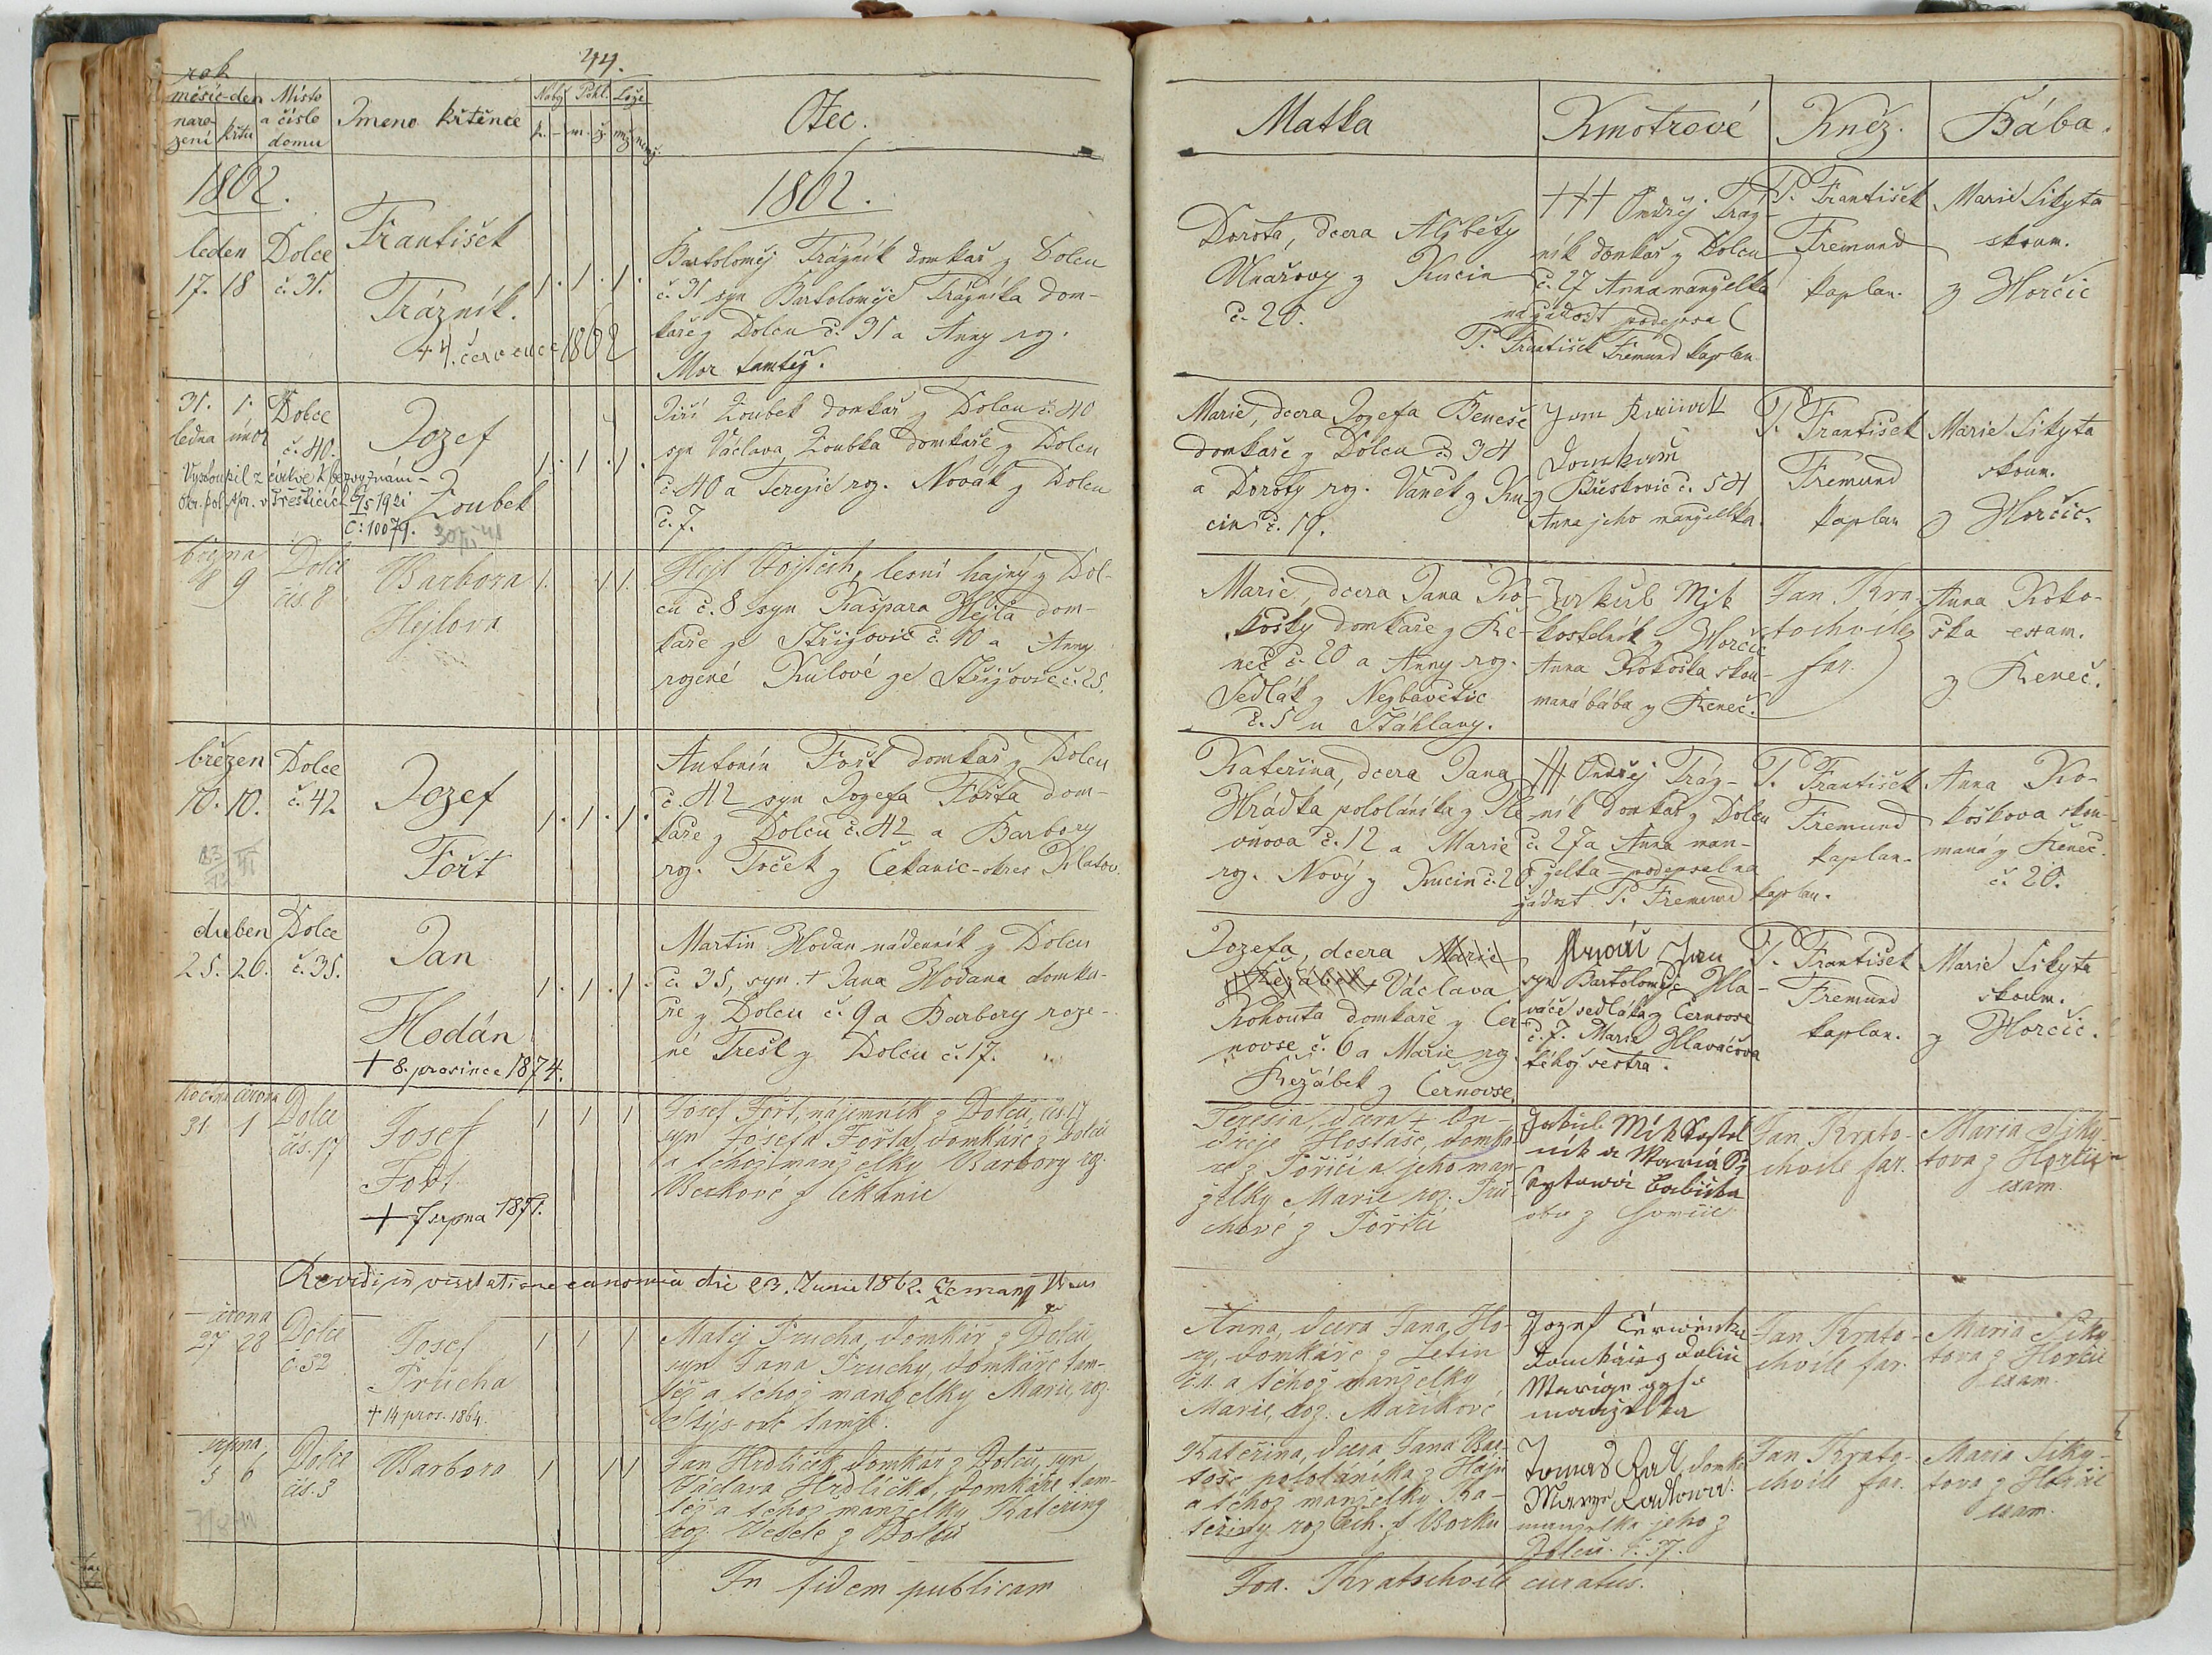 44.
rok
měsíc-den
naro-
zení
křtu
Místo
a číslo
domu
Jmeno křtěnce
Náby
Pohl.
Lože
k.
m.
ž.
mž
nemž.
Otec.
Matka
Kmotrové
Kněz.
Bába.
1862.
1862.
leden
17. 18
Dolce
č. 31.
František
Trázník.
+ 4. července 1862
1. 1. 1.
Bartoloměj Trázník domkař z Dolcu
č. 31 syn Bartoloměje Trázníka dom-
kaře z Dolcu č. 31 a Anny roz.
Mor tamtéž.
Dorota, dcera Alžběty
z Kucin
č. 20.
+++ Ondřej Tráz-
ník domkař z Dolcu
č. 27 Anna manželka
na žádost podepsal
P. František Fremund kaplan.
P. František
Fremund
kaplan.
Marie Sikyta
skoum.
z Horčic
31. 1.
ledna únor
Dolce
č. 40.
Vystoupil z církve k bezvyznání-
okr. pol. spr. v Přešticích 1921
č: 10079.
Jozef
Zoubek
1. 1. 1.
Jiří Zoubek domkař z Dolcu č. 40
syn Václava Zoubka domkaře z Dolcu
č. 40 a Terezie roz. Novák z Dolcu
č. 7.
Marie, dcera Jozefa Beneše
domkaře z Dolcu č. 34
a Doroty roz. Vaněk z Ku-
cin č. 19.
Jan
Domkař
z Břeskovic č. 54
Anna jeho manželka.
P. František
Fremund
kaplan
Marie Sikyta
skoum.
z Horčic.
března
8 9
Dolce
čís. 8
Barbora
Hejlova
1. 1 1.
Hejl Vojtěch, lesní hajný z Dol-
cu č. 8 syn Kašpara Hejla dom-
kaře ze Střižovic č. 40 a Anny
rozené Kulové ze Střižovic č. 25.
Marie, dcera Jana Ko-
košky domkaře z Ře-
neč č. 20 a Anny roz.
Sedlák z Nezbavětic
č. 5 u Štáhlavy.
Jakub Mik
kostelník z Horčic
Anna Kokoška skou-
maná bába z Řeneč.
Jan Kra-
tochvile
far.
Anna Koko-
ška exam.
z Řeneč.
březen
10. 10.
Dolce
č. 42
Jozef
Fořt
1. 1. 1.
Antonín Fořt domkař z Dolcu
č. 42 syn Jozefa Fořta dom-
kaře z Dolcu č. 42 a Barbory
roz. Toček z Čekanic-okres Klatov.
Kateřina, dcera Jana
Hrádka pololáníka z Ple-
vňova č. 12 a Marie
roz. Nový z Kucin č. 20.
+++ Ondřej Tráz-
ník domkař z Dolcu
č. 27 a Anna man-
želka - podepsal na
žádost P. Fremund kaplan.
P. František
Fremund
kaplan.
Anna Ko-
košková skou-
maná z Řeneč.
č. 20.
duben
25. 26.
Dolce
č. 35.
Jan
Hodán
+ 8. prosince 1874.
1. 1. 1.
Martin Hodan nádenník z Dolcu
č. 35, syn + Jana Hodana domka-
ře z Dolcu č. 9 a Barbory roze-
né Trešl z Dolcu č. 17.
Jozefa, dcera Marie
Řežábek, Václava
Kohouta domkaře z Čer-
novse č. 6 a Marie roz.
Řežábek z Černovse.
Jan
syn Bartoloměje Hla-
váče sedláka z Černovse
č. 7. Marie Hlaváčova
téhož sestra.
P. František
Fremund
kaplan.
Marie Sikyta
skoum.
z Horčic.
června
31. 1
Dolce
čís. 17
Josef
Fořt
+ 7 srpna 1871.
1 1 1
Josef Fořt, nájemník z Dolců, čís. 17
syn Josefa Fořta, domkáře z Dolců
a téhož manželky Barbory roz.
z Čekanic
Teresia, dcera + On-
dřeje Hostaše, domká-
ře z Poříčí a jeho man-
želky Marie roz.
z Poříčí
Jakub Mik Kostel
ník a Maria Si
kytowá babička
oba z Horčic
Jan Krato-
chvile far.
Maria Siky-
tova z Horčic
exam.
Revidi in visitatione canonica die 23. Junii 1862. Zeman
června
27 28
Dolce
č. 32
Josef
Průcha
+ 14 pros. 1864.
1 1 1
Matěj Průcha, domkář z Dolců
syn Jana Průchy, domkáře tam-
též a téhož manželky Marie, roz.
tamže.
Anna, dcera Jana Ho-
ry, domkáře z Letin
č. 11. a téhož manželky
Marie, roz. Maříkové
Jozef Červenka
Domkář z Dolců
manželka
Jan Krato-
chvile far.
Maria Siky-
tova z Horčic
exam.
srpna
5 6
Dolce
čís. 3
Barbora
1 1 1
Jan Hrdlička, domkář z Dolců, syn
Václava Hrdlička, domkáře tam-
též a téhož manželky Kateřiny
roz. Veselé z Dolců
Kateřina, dcera Jana Bar-
toše pololáníka z Háje
a téhož manželky Ka-
teřiny roz. Čech. z Borku
Tomáš Radl, domkř
Marye Radlowá
manželka jeho z
Dolců. č. 37.
Jan Krato-
chvile far.
Maria Siky-
tova z Horčic
exam.
In fidem publicam
Joa. Kratochvile curatus.